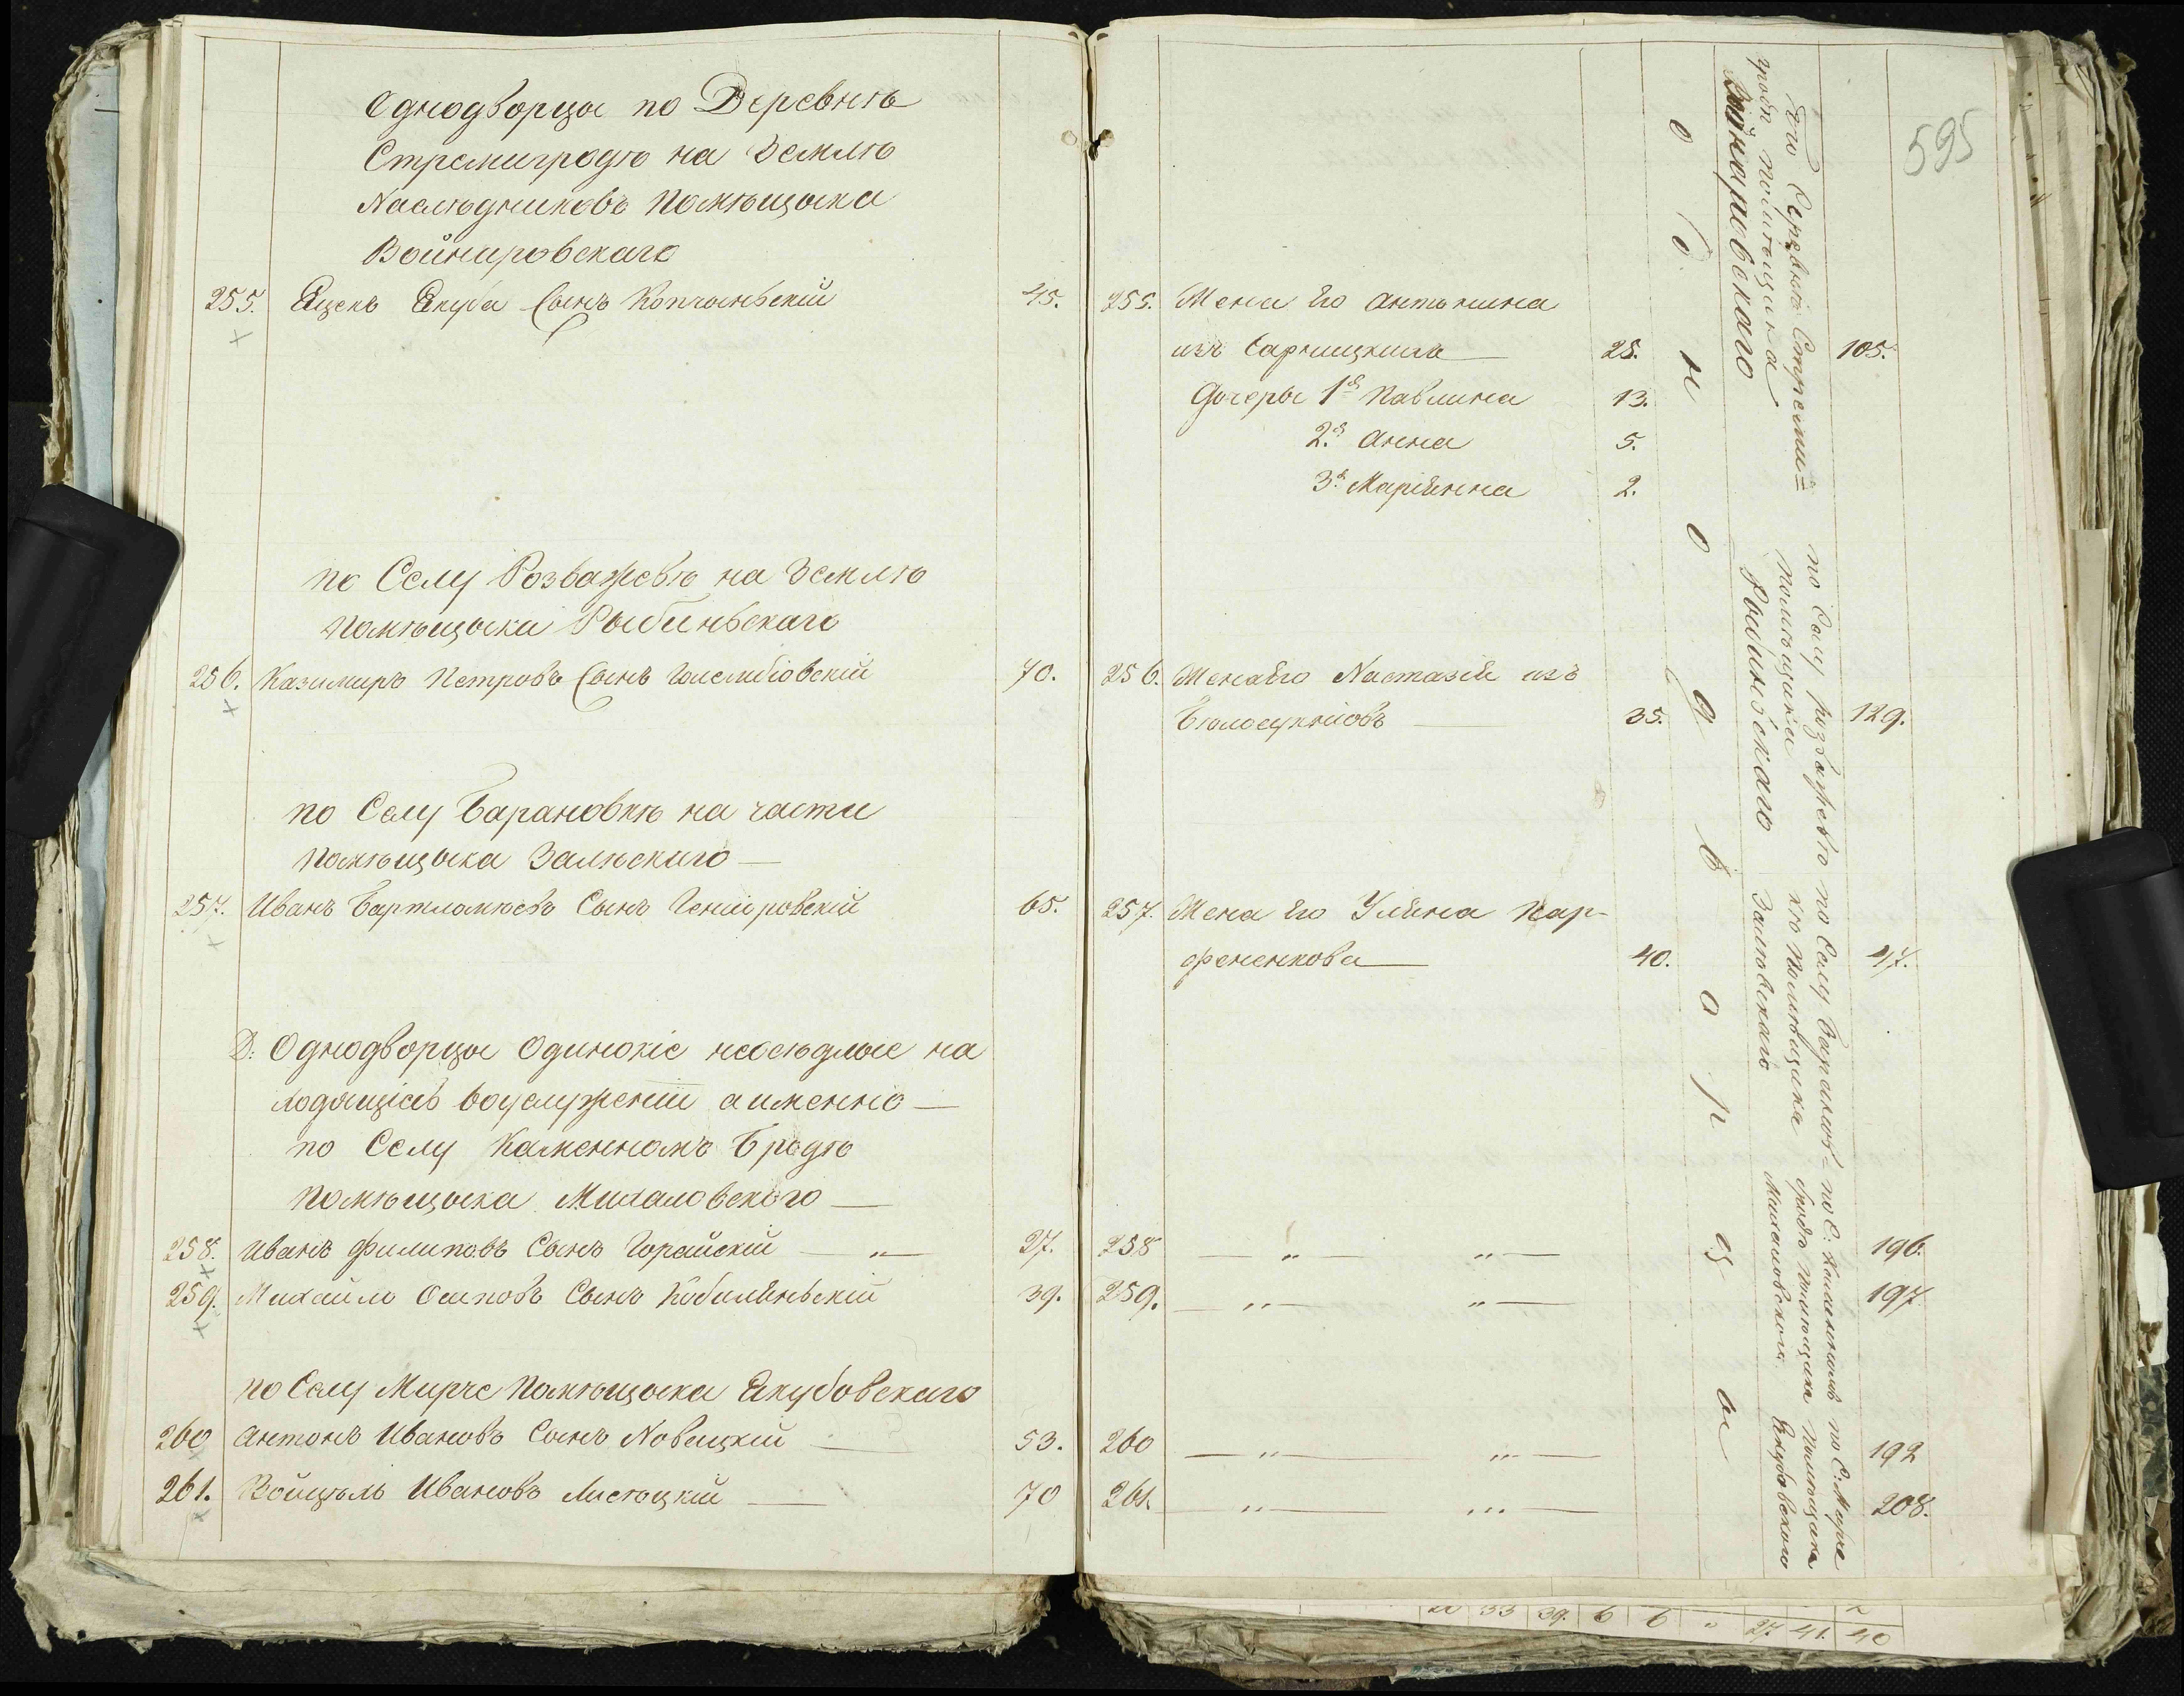 Однодворцы по Деревнѣ
Стремигродѣ на Землѣ
Наслѣдниковъ Помѣщыка
Войнаровскаго
255. Яцекъ Якуба Сынъ Копчыньскій 45.
по Селу Розважевѣ на Землѣ
Помѣщыка Рыбиньскаго
256. Казимиръ Петровъ Сынъ Голембіовскій 70.
по Селу Барановкѣ на части
Помѣщыка Залѣскаго
257. Иванъ Бартломѣевъ Сынъ 65.
D: Однодворцы Одинокіе неосѣдлые на
ходящіесь воуслуженіи а именно
по Селу Каменномъ Бродѣ
Помѣщыка Михаловского
258. Иванъ Филиповъ Сынъ Горайскій „ 27.
259. Михайло Осиповъ Сынъ Кобыляньскій 39.
по Селу Мирче Помѣщыка Якубовскаго
260 Антонъ Ивановъ Сынъ Новицкій 53.
261. Войцѣхъ Ивановъ 70
595
255. Жена Его Антонина
изъ Сарницкихъ 25. 105.
Дочеры 1я Павлина 13.
2я Анна 5.
3я Маріянна 2.
256. Жена Его Настазія изъ
35. 129.
257. Жена Его Уляна Пар-
фененкова 40. 47.
258 „ „ 196.
259. „ „ 197
260 „ „ 192
261. „ „ 208.
однодворцы
По Деревнѣ Стреми=
гродѣ Помѣщика
Войнаровского
по Селу Розважевѣ
Помѣщика
Рыбинського
по Селу Бараков=
кѣ Помѣщика
Залѣскаго
по С: Каменномъ
бродѣ Помѣщика
Михаловского
по С: Мирче
Помѣщика
Якубовского
33 39. 6 6 „ 27. 41. 40